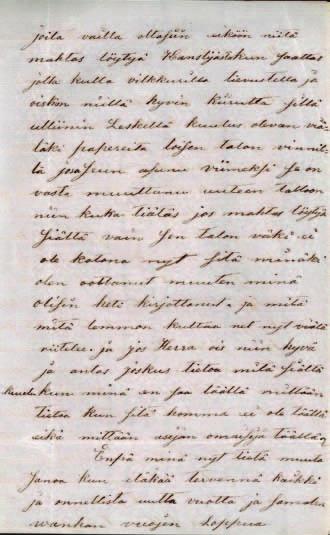 joita vailla ottasiin eikään niitä
mahtas löytyä Kanslijastakun saattas
jolla kulla vilkkuilla tievustella ja
oiskin niillä hyvin kiirutta sillä
Leskellä kuulus olevan viä
läki papereita toisen talon vinnil
lä josa seun asunu viimeksi Se on
vasta muuttunu uuteen talloon
niin kuka tiätäs jos mahtas löytyä
siältä vain sen talon väki ei
ole kotona nyt sitä minäki
olen oottanut muuten minä
olisin heti kirjottanut. ja mitä
mitä lemmon kulttaa net nyt viälä
riitelee. ja jos Herra ois niin hyvä
ja antas joskus tietoa mitä siältä
kuulu kun minä en saa täältä mittään
tietoa kun sitä homma ei ole täällä
eikä mittään asijan omaisija täällä
Ensiä minä nyt tietä muuta
sanoa kun eläkää tervennä kaikki
ja onnellista uutta vuotta ja samalla
wanhan vuojen Loppua